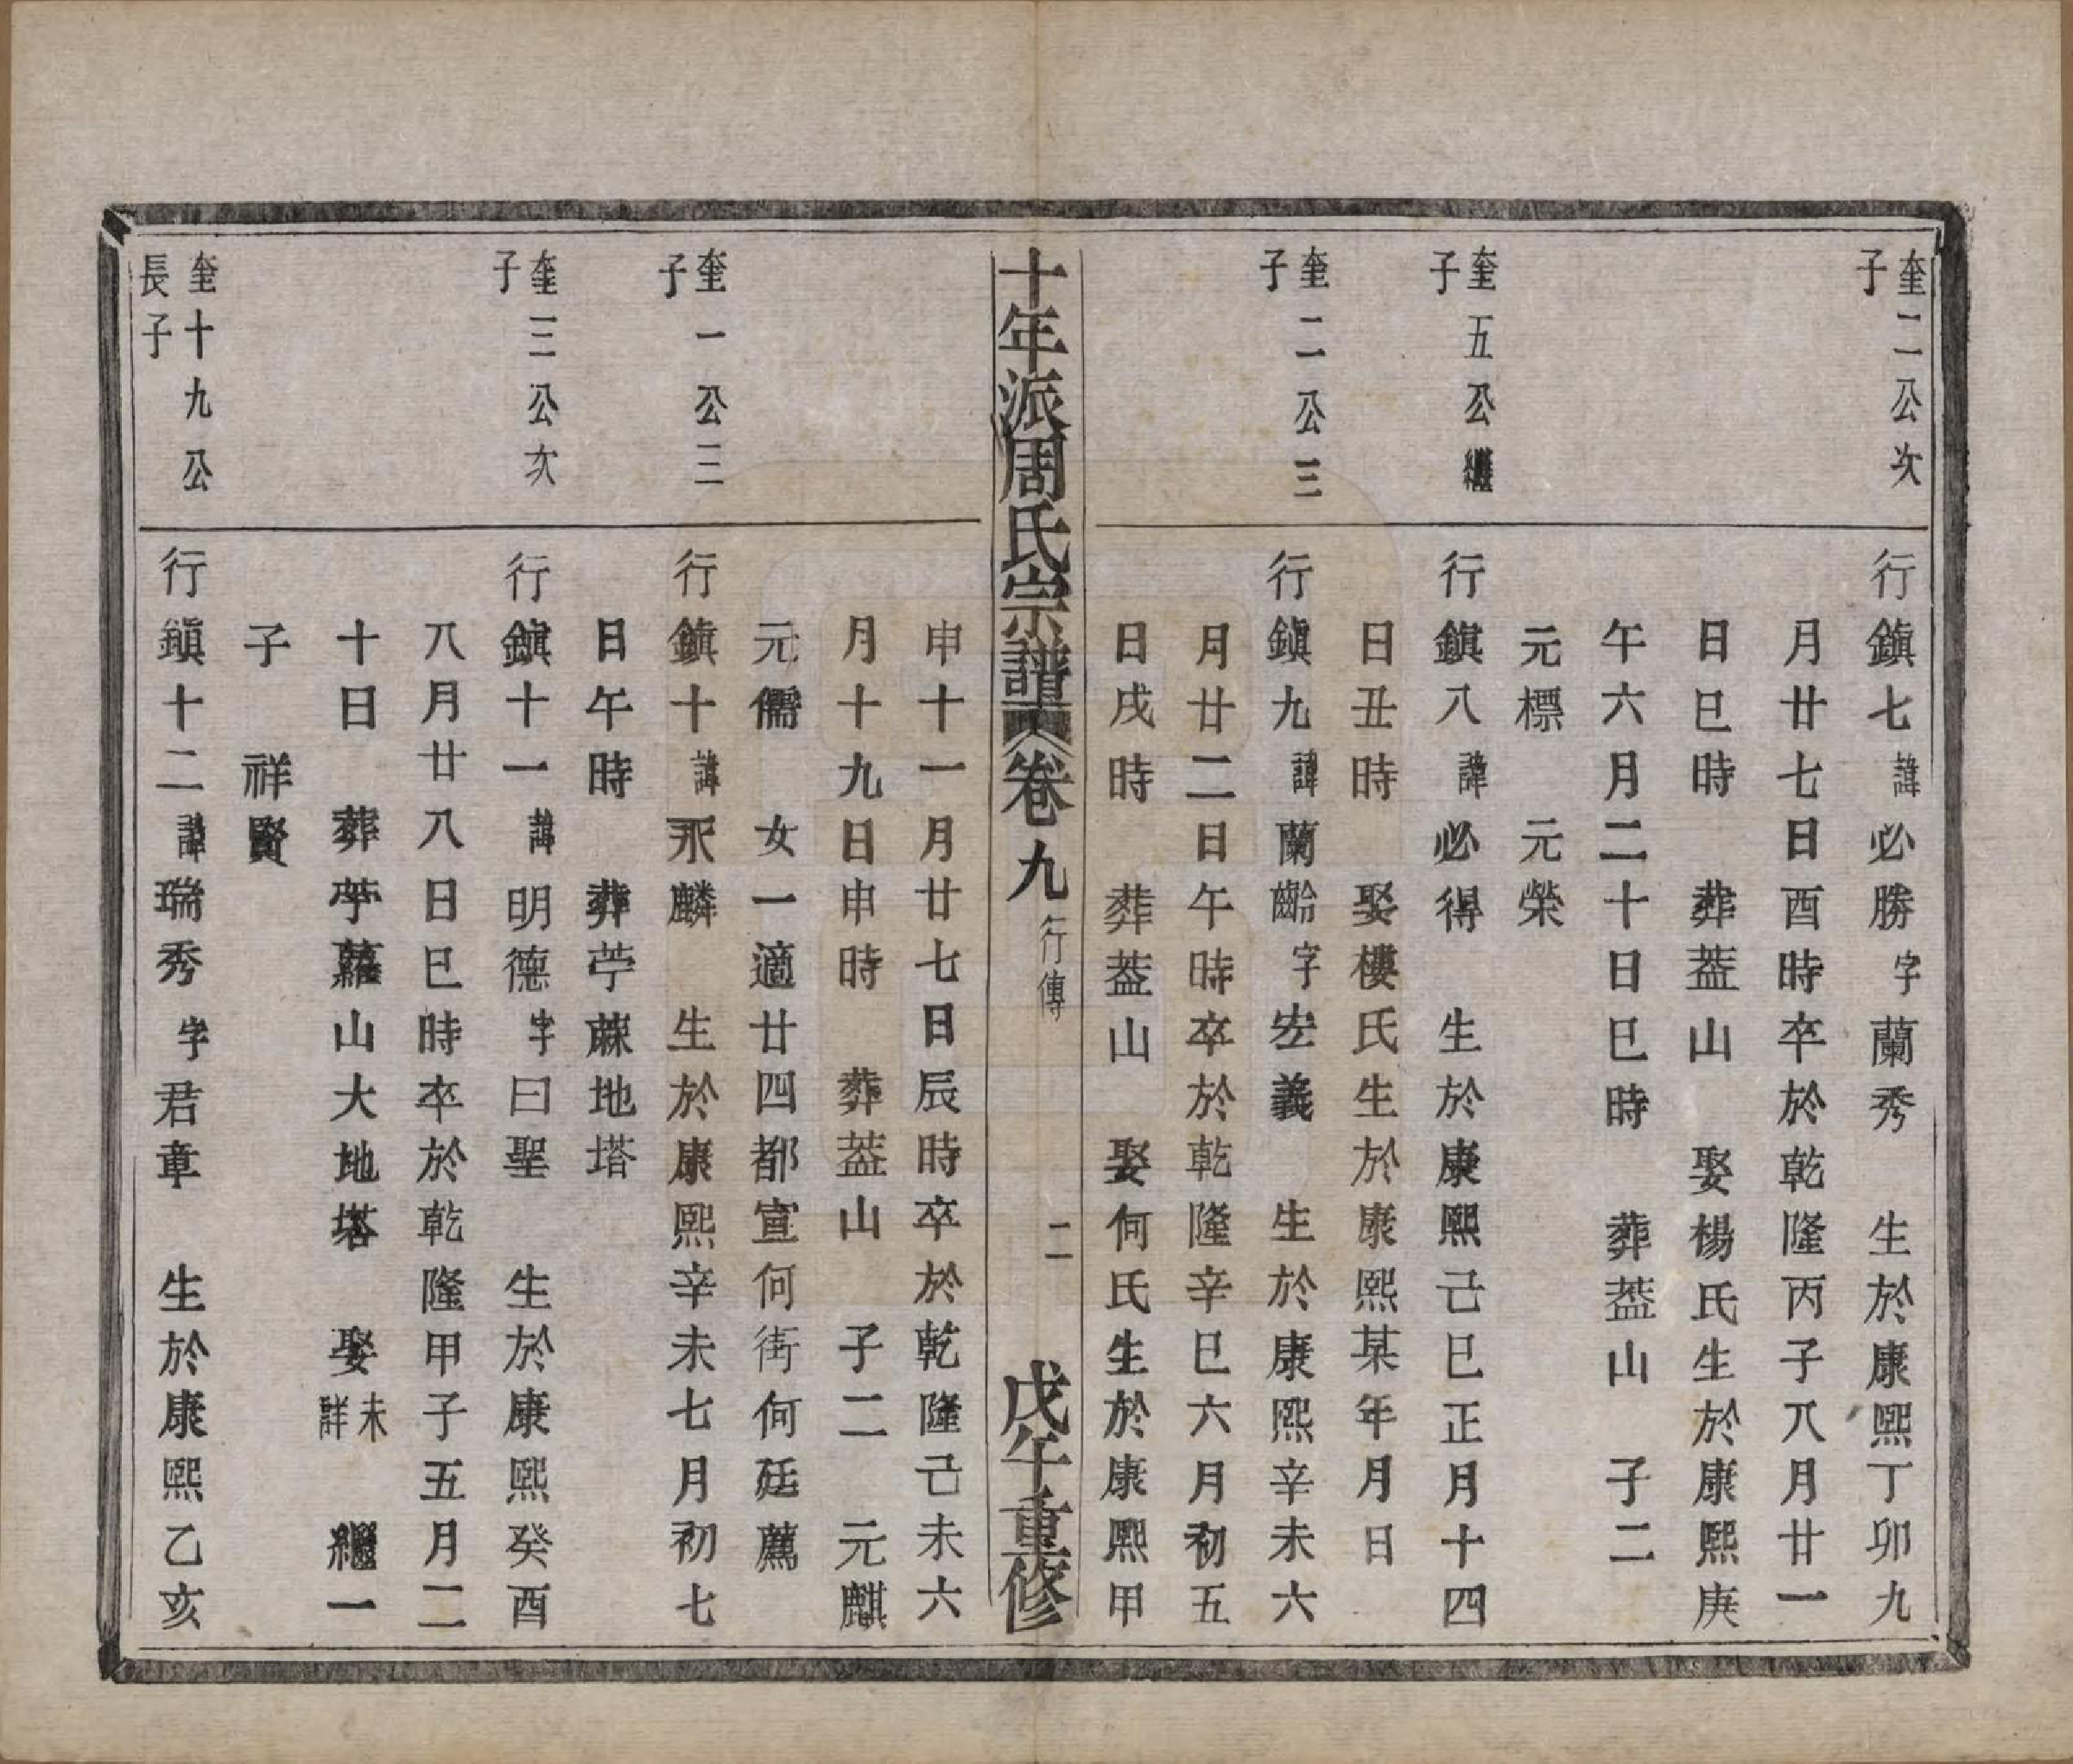 奎二公次
子
行鎮七諱必勝字蘭秀 生於康熙丁卯九
月廿七日酉時卒於乾隆丙子八月廿一
日巳時 葬葢山 娶楊氏生於康熙庚
午六月二十日巳時 葬葢山 子二
元標 元榮
奎五公繼
子
行鎮八諱必得 生於康熙己巳正月十四
日丑時 娶樓氏生於康熙某年月日
奎二公三
子
行鎮九諱蘭齡字宏義 生於康熙辛未六
月廿二日午時卒於乾隆辛巳六月初五
日戌時 葬葢山 娶何氏生於康熙甲
十年派周氏宗譜 卷九 行傳 二 戊午重修
申十一月廿七日辰時卒於乾隆己未六
月十九日申時 葬葢山 子二 元麒
元儒 女一適廿四都宣何街何廷薦
奎一公三
子
行鎮十諱永麟 生於康熙辛未七月初七
日午時 葬苧蔴地塔
奎三公次
子
行鎮十一諱明德字曰聖 生於康熙癸酉
八月廿八日巳時卒於乾隆甲子五月二
十日 葬苧蘿山大地塔 娶未詳 繼一
子 祥賢
奎十九公
長子
行鎮十二諱瑞秀字君章 生於康熙乙亥